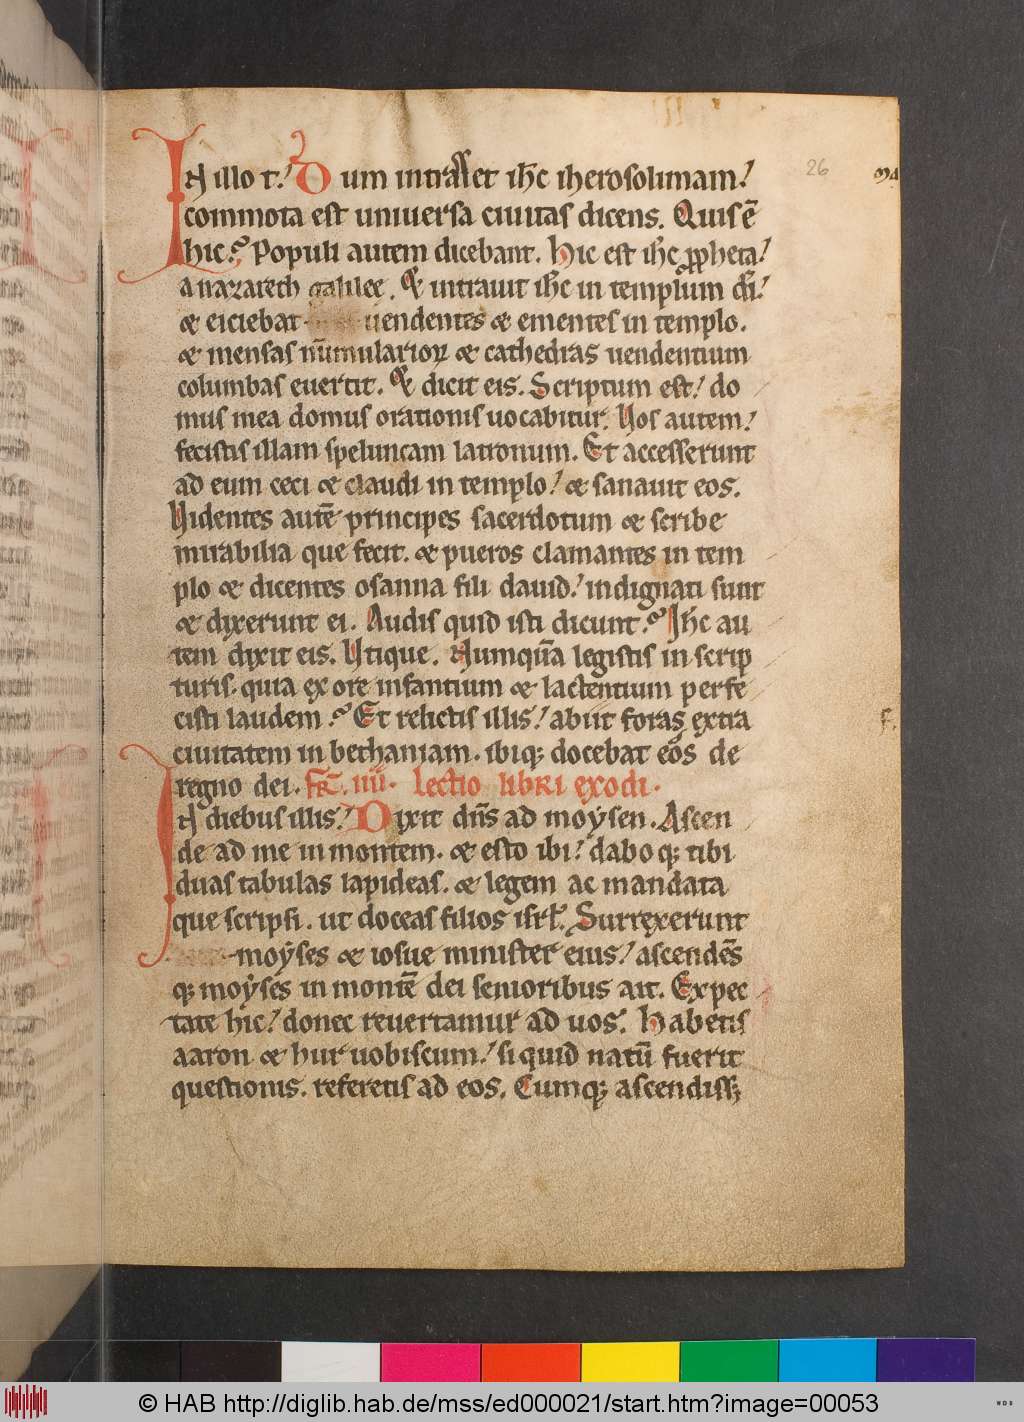 26
ma
In illo t. Dum intrasset ihc iherosolimam.
commota est uniuersa ciuitas dicens. Quis ē
hic? Populi autem dicebant. Hic est ihc ppheta
a nazareth galilee. Et intrauit ihc in templum di
& eiciebat uendentes & ementes in templo.
& mensas nūmulariorꝝ & cathedras uendentium
columbas euertit. Et dicit eis. Scriptum est do
mus mea domus orationis uocabitur. Uos autem
fecistis illam speluncam latronum. Et accesserunt
ad eum ceci & claudi in templo & sanauit eos.
Uidentes autē principes sacerdotum & scribe
mirabilia que fecit. & pueros clamantes in tem
plo & dicentes osanna fili dauid indignati sunt
& dixerunt ei. Audis quid isti dicunt? Ihc au
tem dixit eis. Utique. Numquā legistis in scrip
turis. quia ex ore infantium & lactentium perfe
cisti laudem? Et relictis illis abiit foras extra
ciuitatem in bethaniam. ibiqꝫ docebat eos de
F.
regno dei. fr̄. iiii. Lectio libri exodi.
In diebus illis. Dixit dn̄s ad moẏsen. Ascen
de ad me in montem. & esto ibi daboqꝫ tibi
duas tabulas lapideas. & legem ac mandata
que scripsi. ut doceas filios isrl. Surrexerunt
moẏses & iosue minister eius ascendēs
qꝫ moẏses in montē dei senioribus ait. Expec
tate hic donec reuertamur ad uos. Habetis
aaron & hur uobiscum si quid natū fuerit
questionis. referetis ad eos. Cumqꝫ ascendissꝫ
© HAB http://diglib.hab.de/mss/ed000021/start.htm?image=00053